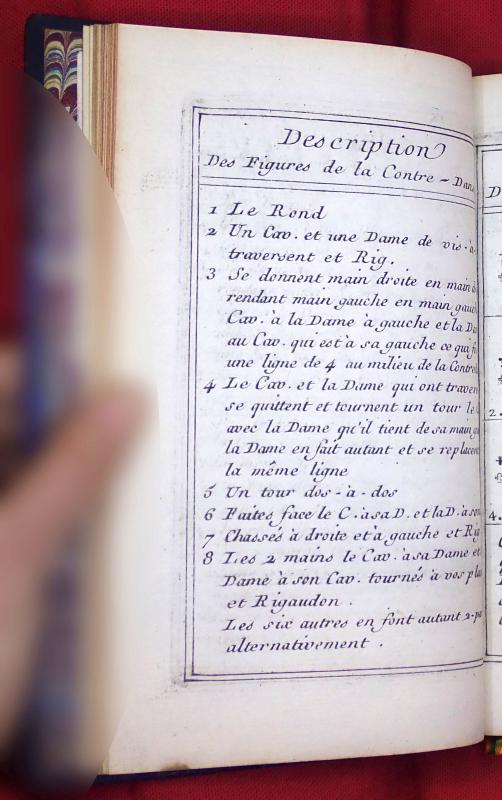 Description
Des Figures de la Contre-
1 Le Rond
2 Un Cav. et une Dame de vis-à-
traversent et Rig.
3 Se donnent main droite en main
rendant main gauche en main
Cav. à la Dame à gauche et la
au Cav. qui est à sa gauche ce qui
une ligne de 4 au milieu de la
4 Le Cav. et la Dame qui ont
se quittent et tournent un tour le
avec la Dame qu'il tient de sa main
la Dame en fait autant et se
la même ligne
5 Un tour dos-à-dos
6 Faites face le C. à sa D. et la D. à son
7 Chassés à droite et à gauche et Rig
8 Les 2 mains le Cav. à sa Dame et
Dame à son Cav. tournés à vos
et Rigaudon.
Les six autres en font autant 2-
alternativement.
D
2.
4.